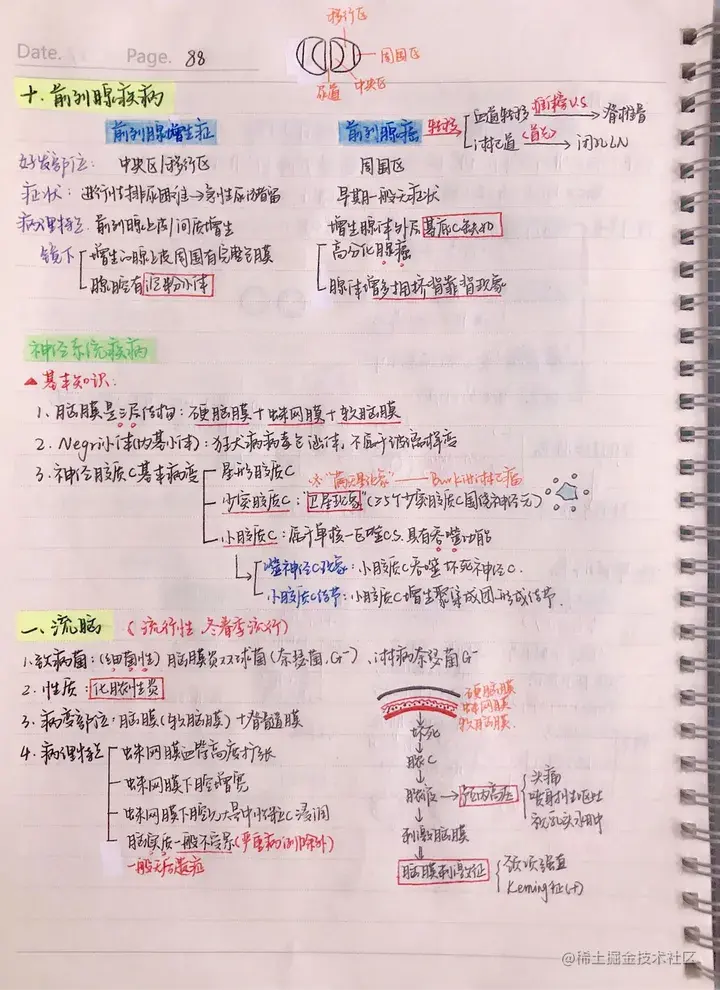 移行区
Date. Page. 88
周围区
尿道 中央区
十. 前列腺疾病
前列腺增生症 前列腺癌 转移 血道转移 直接V.S → 脊椎骨
淋巴道 (首先) → 闭孔LN
好发部位: 中央区/移行区 周围区
症状: 进行性排尿困难→急性尿潴留 早期一般无症状
病理特征: 前列腺上皮/间质增生 增生腺体外层基底C缺如
镜下 增生的腺上皮周围有完整基膜 高分化腺癌
腺腔有淀粉小体 腺体增多拥挤背靠背现象
神经系统疾病
▲基本知识:
1. 脑膜是三层结构: 硬脑膜+蛛网膜+软脑膜
2. Negri小体(内基小体): 狂犬病病毒包涵体, 不属于
3. 神经胶质C基本病变 星形胶质C
≠“满天星现象”——Burkitt淋巴瘤
少突胶质C: “卫星现象”(≥5个少突胶质C围绕神经元)
小胶质C: 属于单核—巨噬CS. 具有吞噬功能
噬神经C现象: 小胶质C吞噬坏死神经C.
小胶质C结节: 小胶质C增生聚集成团形成结节.
一. 流脑 (流行性 冬春季流行)
1. 致病菌: (细菌性) 脑膜炎双球菌(奈瑟菌, G⁻)、淋病奈瑟菌G⁻
2. 性质: 化脓性炎
硬脑膜
蛛网膜
软脑膜
3. 病变部位: 脑膜(软脑膜)+脊髓膜
4. 病理特征 蛛网膜血管高度扩张
蛛网膜下腔增宽
蛛网膜下腔见大量中性粒C浸润
脑实质一般不受累(严重病例除外)
一般无后遗症
坏死
脓C
脓液 → 颅内高压 头痛
喷射性呕吐
视乳头水肿
刺激脑膜
脑膜刺激征 颈项强直
Kernig征(+)
@稀土掘金技术社区